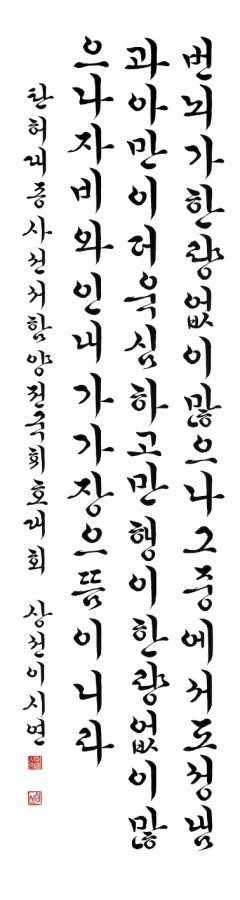 번뇌가한량없이많으나그중에서도성냄
과아만이더욱심하고만행이한량없이많
으나자비와인내가가장으뜸이니라
탄허대종사선서함양전국휘호대회 상선이시연